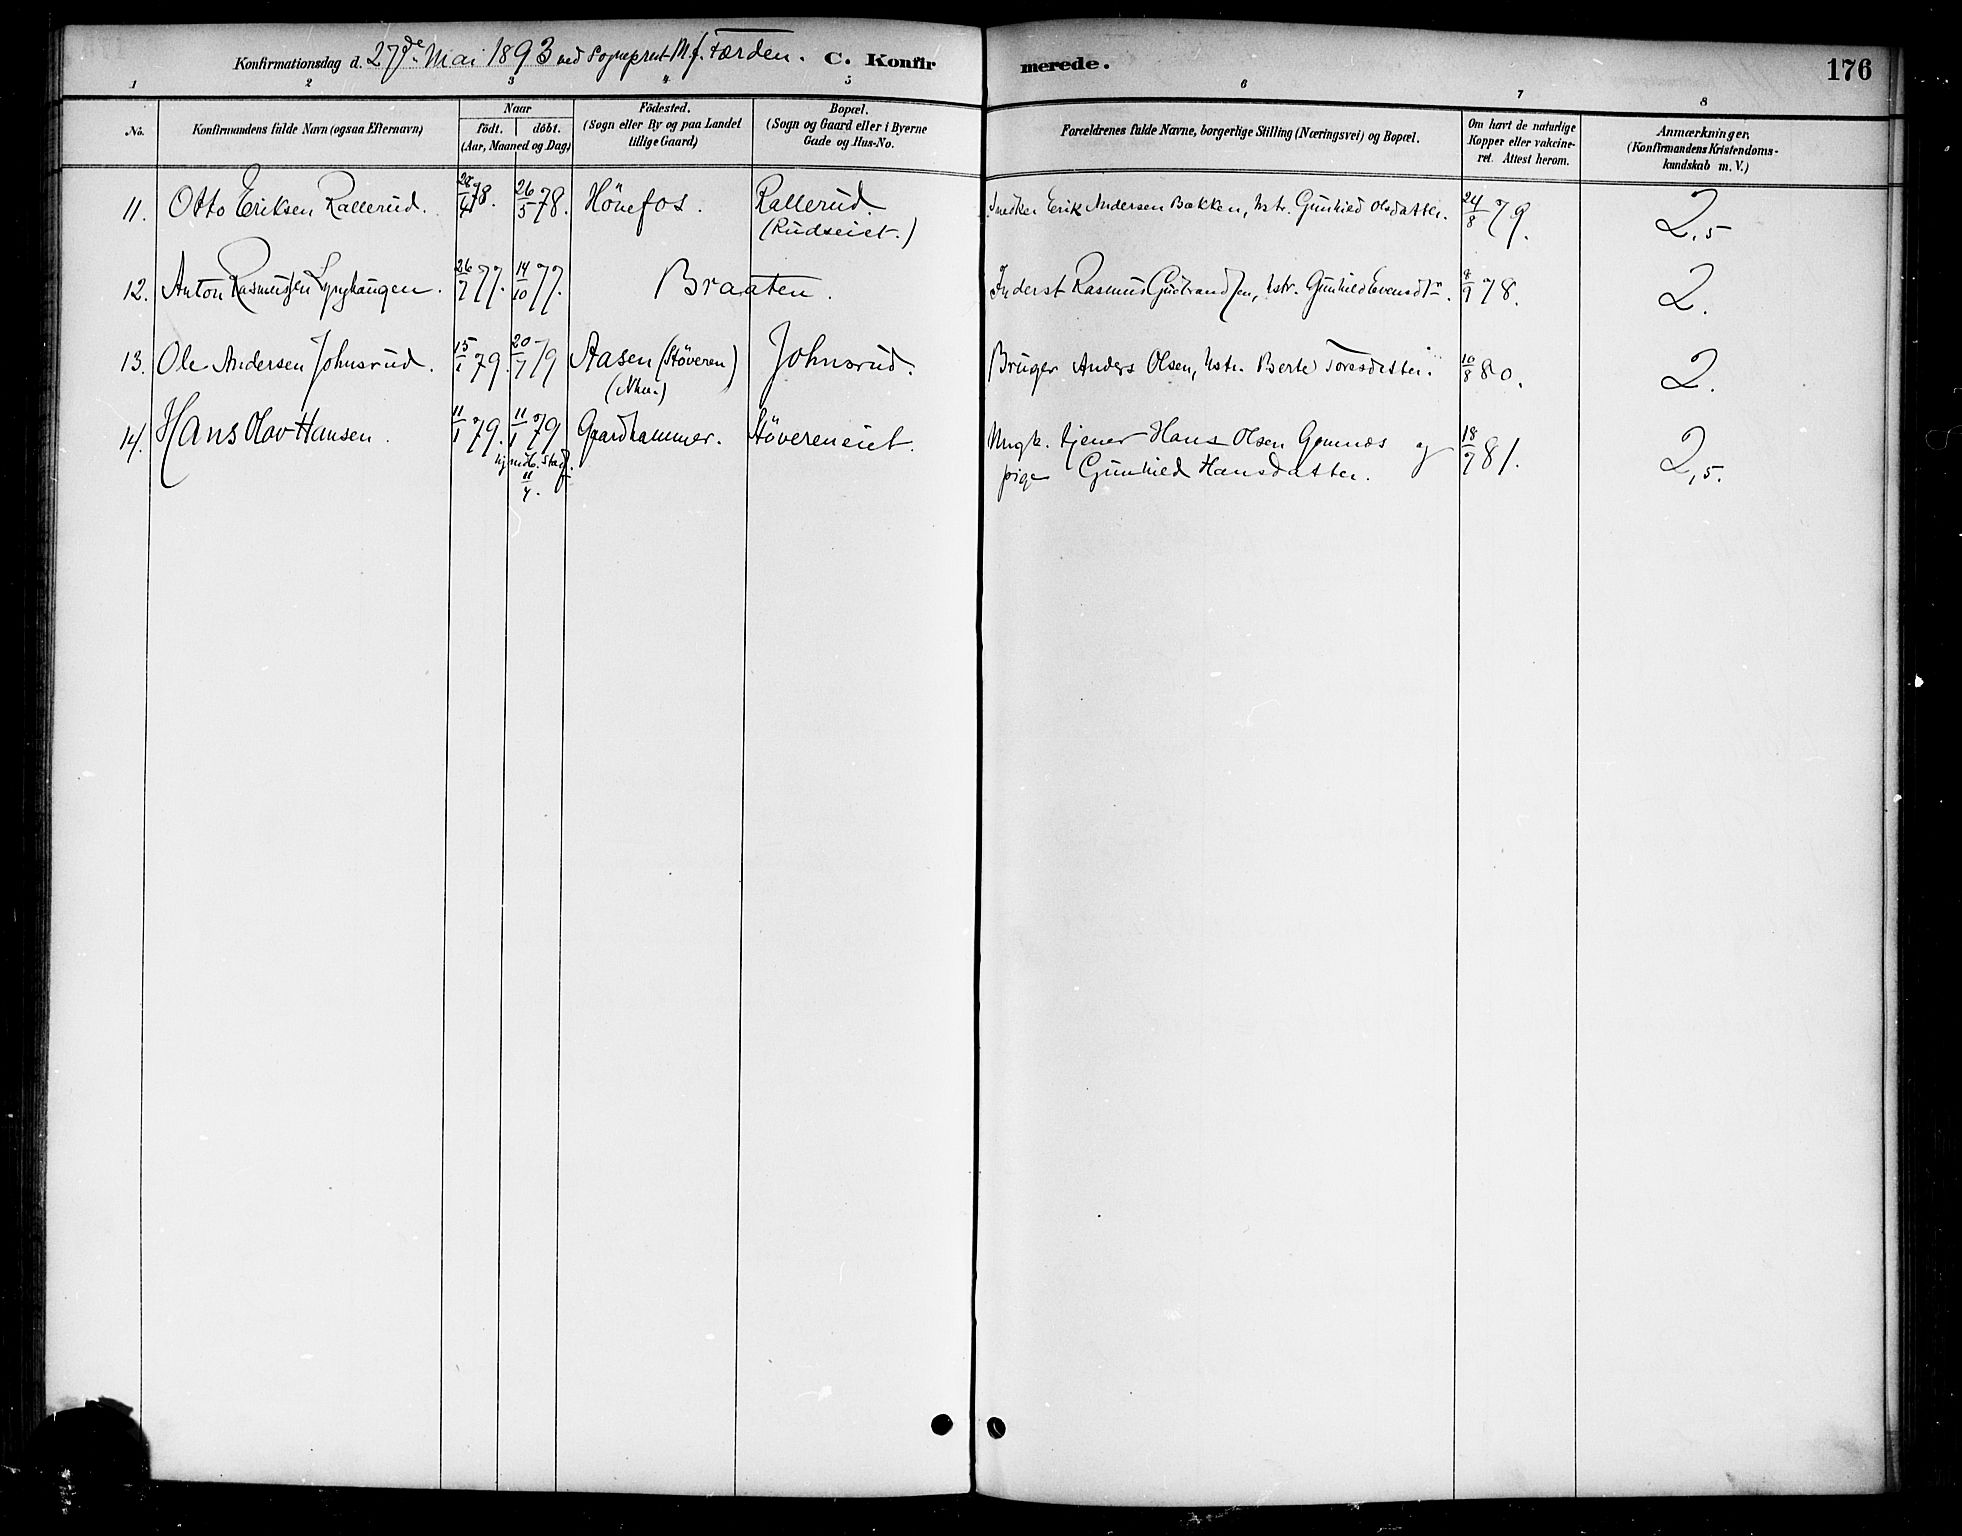 Konfirmationsdag d. 27de Mai 1893 ved Sogneprest M. J. Færden. C. Konfirmerede. 176
1 2 3 4 5 6 7 8
No. Konfirmandens fulde Navn (ogsaa Efternavn) Naar födt. döbt. (Aar, Maaned og Dag) Födested. (Sogn eller By og paa Landet tillige Gaard) Bopæl. (Sogn og Gaard eller i Byerne Gade og Hus-No. Forældrenes fulde Navne, borgerlige Stilling (Næringsvei) og Bopæl. Om havt de naturlige Kopper eller vakcineret. Attest herom. Anmærkninger, (Konfirmandens Kristendomskundskab m. V.)
11. Otto Eriksen Rallerud. 28/4 78. 26/5 78. Hönefos. Rallerud. (Rudseiet.) Snedker Erik Andersen Bakken, hstr. Gunhild Olsdatter. 24/8 79. 2,5
12. Anton Rasmussen Lynghaugen. 26/7 77. 14/10 77. Braaten. Inderst Rasmus Gudbrandsen, hstr. Gunhild Evensdtr 8/9 78. 2.
13. Ole Andersen Johnsrud. 15/1 79. 20/7 79 Aasen (Störveren) Johnsrud. Bruger Anders Olsen, hstr. Berte Toresdatter. 10/8 80. 2.
14. Hans Olav Hansen. 11/1 79. 11/1 79 Gaardhammer. Stövereneiet. Ungk. tjener Hans Olsen Gomnæs og
hjmdb. Stadf. 11/4. pige Gunhild Hansdatter. 18/7 81. 2,5.